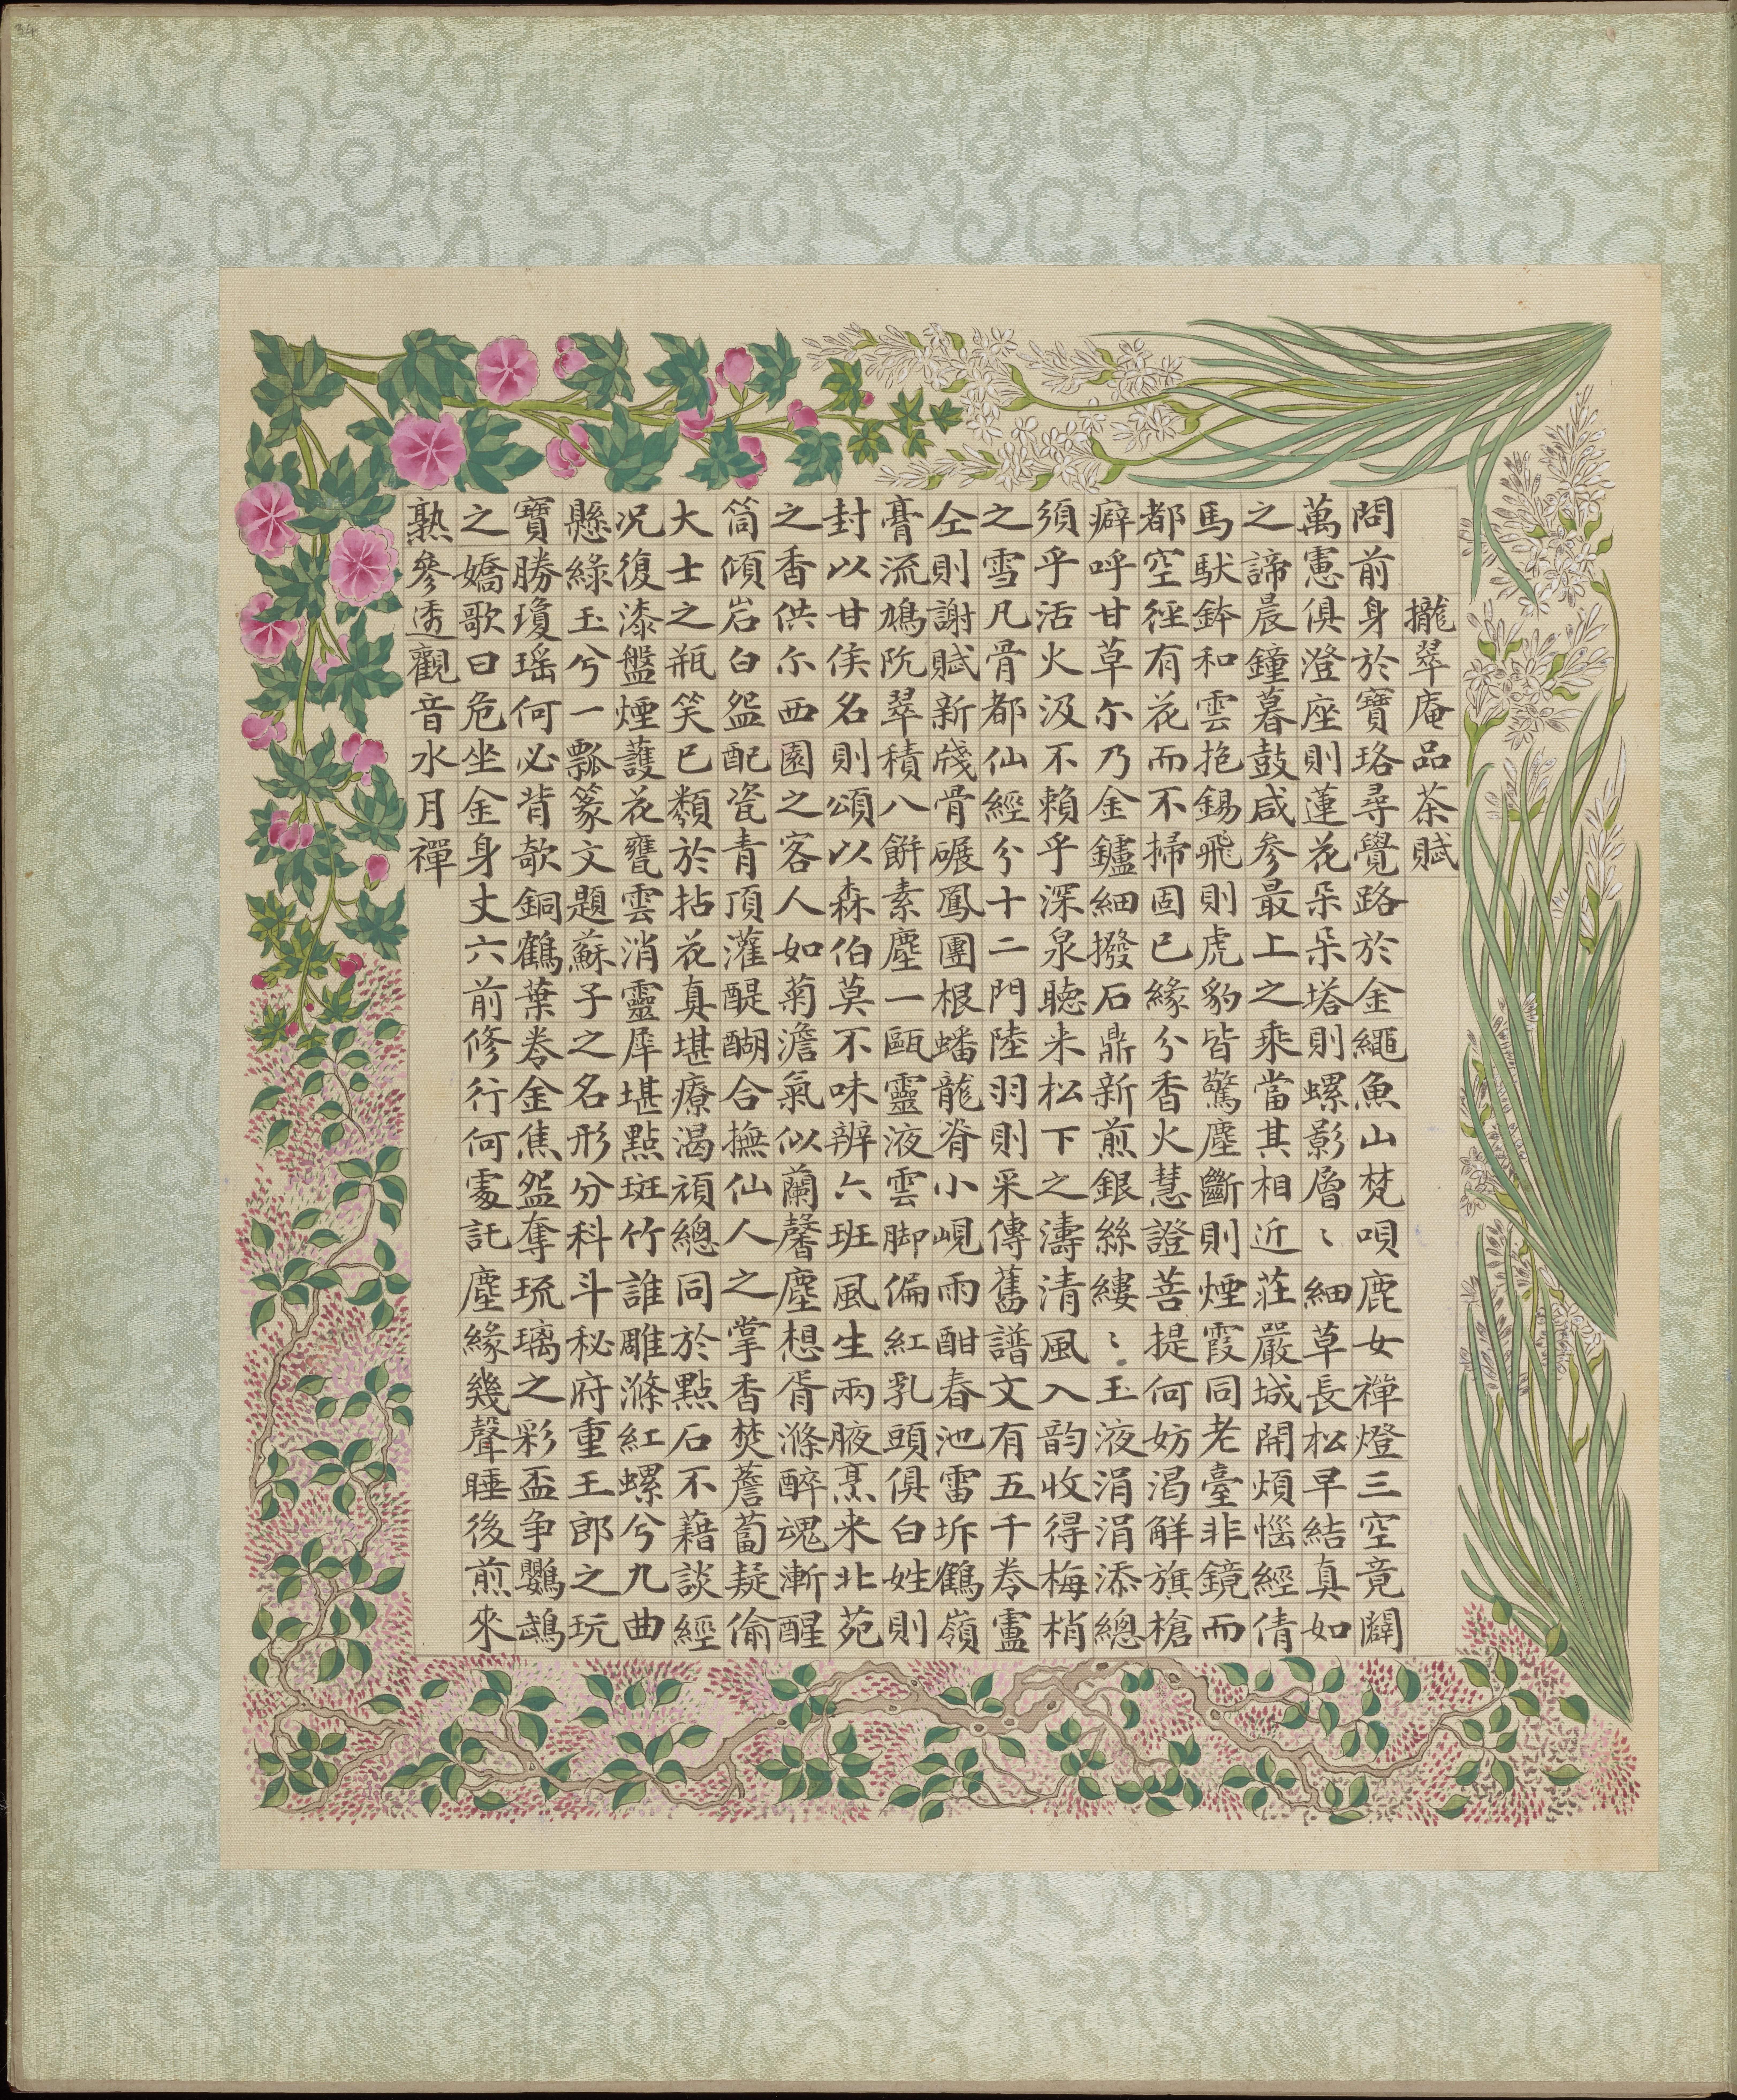 34
攏翠庵品茶賦
問前身於寶珞尋覺路於金繩魚山梵唄鹿女禪燈三空竟闢
萬慮俱澄座則蓮花朵朵塔則螺影層〻細草長松早結真如
之諦晨鐘暮鼓咸参最上之乘當其相近莊嚴城開煩惱經倩
馬馱鉢和雲抱錫飛則虎豹皆驚塵斷則煙霞同老臺非鏡而
都空徑有花而不掃固已緣分香火慧證菩提何妨渴解旗槍
癖呼甘草尔乃金鑪細撥石鼎新煎銀絲縷〻玉液涓涓添總
須乎活火汲不賴乎深泉聽来松下之濤清風入韵收得梅梢
之雪凡骨都仙經分十二門陸羽則采傳舊譜文有五千卷盧
仝則謝賦新牋骨碾鳳團根蟠龍脊小峴雨酣春池雷坼鶴嶺
膏流鳩阬翠積八餅素塵一甌靈液雲脚偏紅乳頭俱白姓則
封以甘侯名則頌以森伯莫不味辨六班風生兩腋烹来北苑
之香供尔西園之客人如菊澹氣似蘭馨塵想胥滌醉魂漸醒
筒傾岩白盌配瓷青頂灌醍醐合撫仙人之掌香焚薝蔔疑偷
大士之瓶笑已纇於拈花真堪療渴頑總同於點石不藉談經
况復漆盤煙護花甕雲消靈犀堪點斑竹誰雕滌紅螺兮九曲
懸綠玉兮一瓢篆文題蘇子之名形分科斗秘府重王郎之玩
寶勝瓊瑶何必背欹銅鶴葉卷金焦盌奪琉璃之彩盃争鸚鵡
之嬌歌曰危坐金身丈六前修行何處託塵緣幾聲睡後煎來
熟參透觀音水月禪